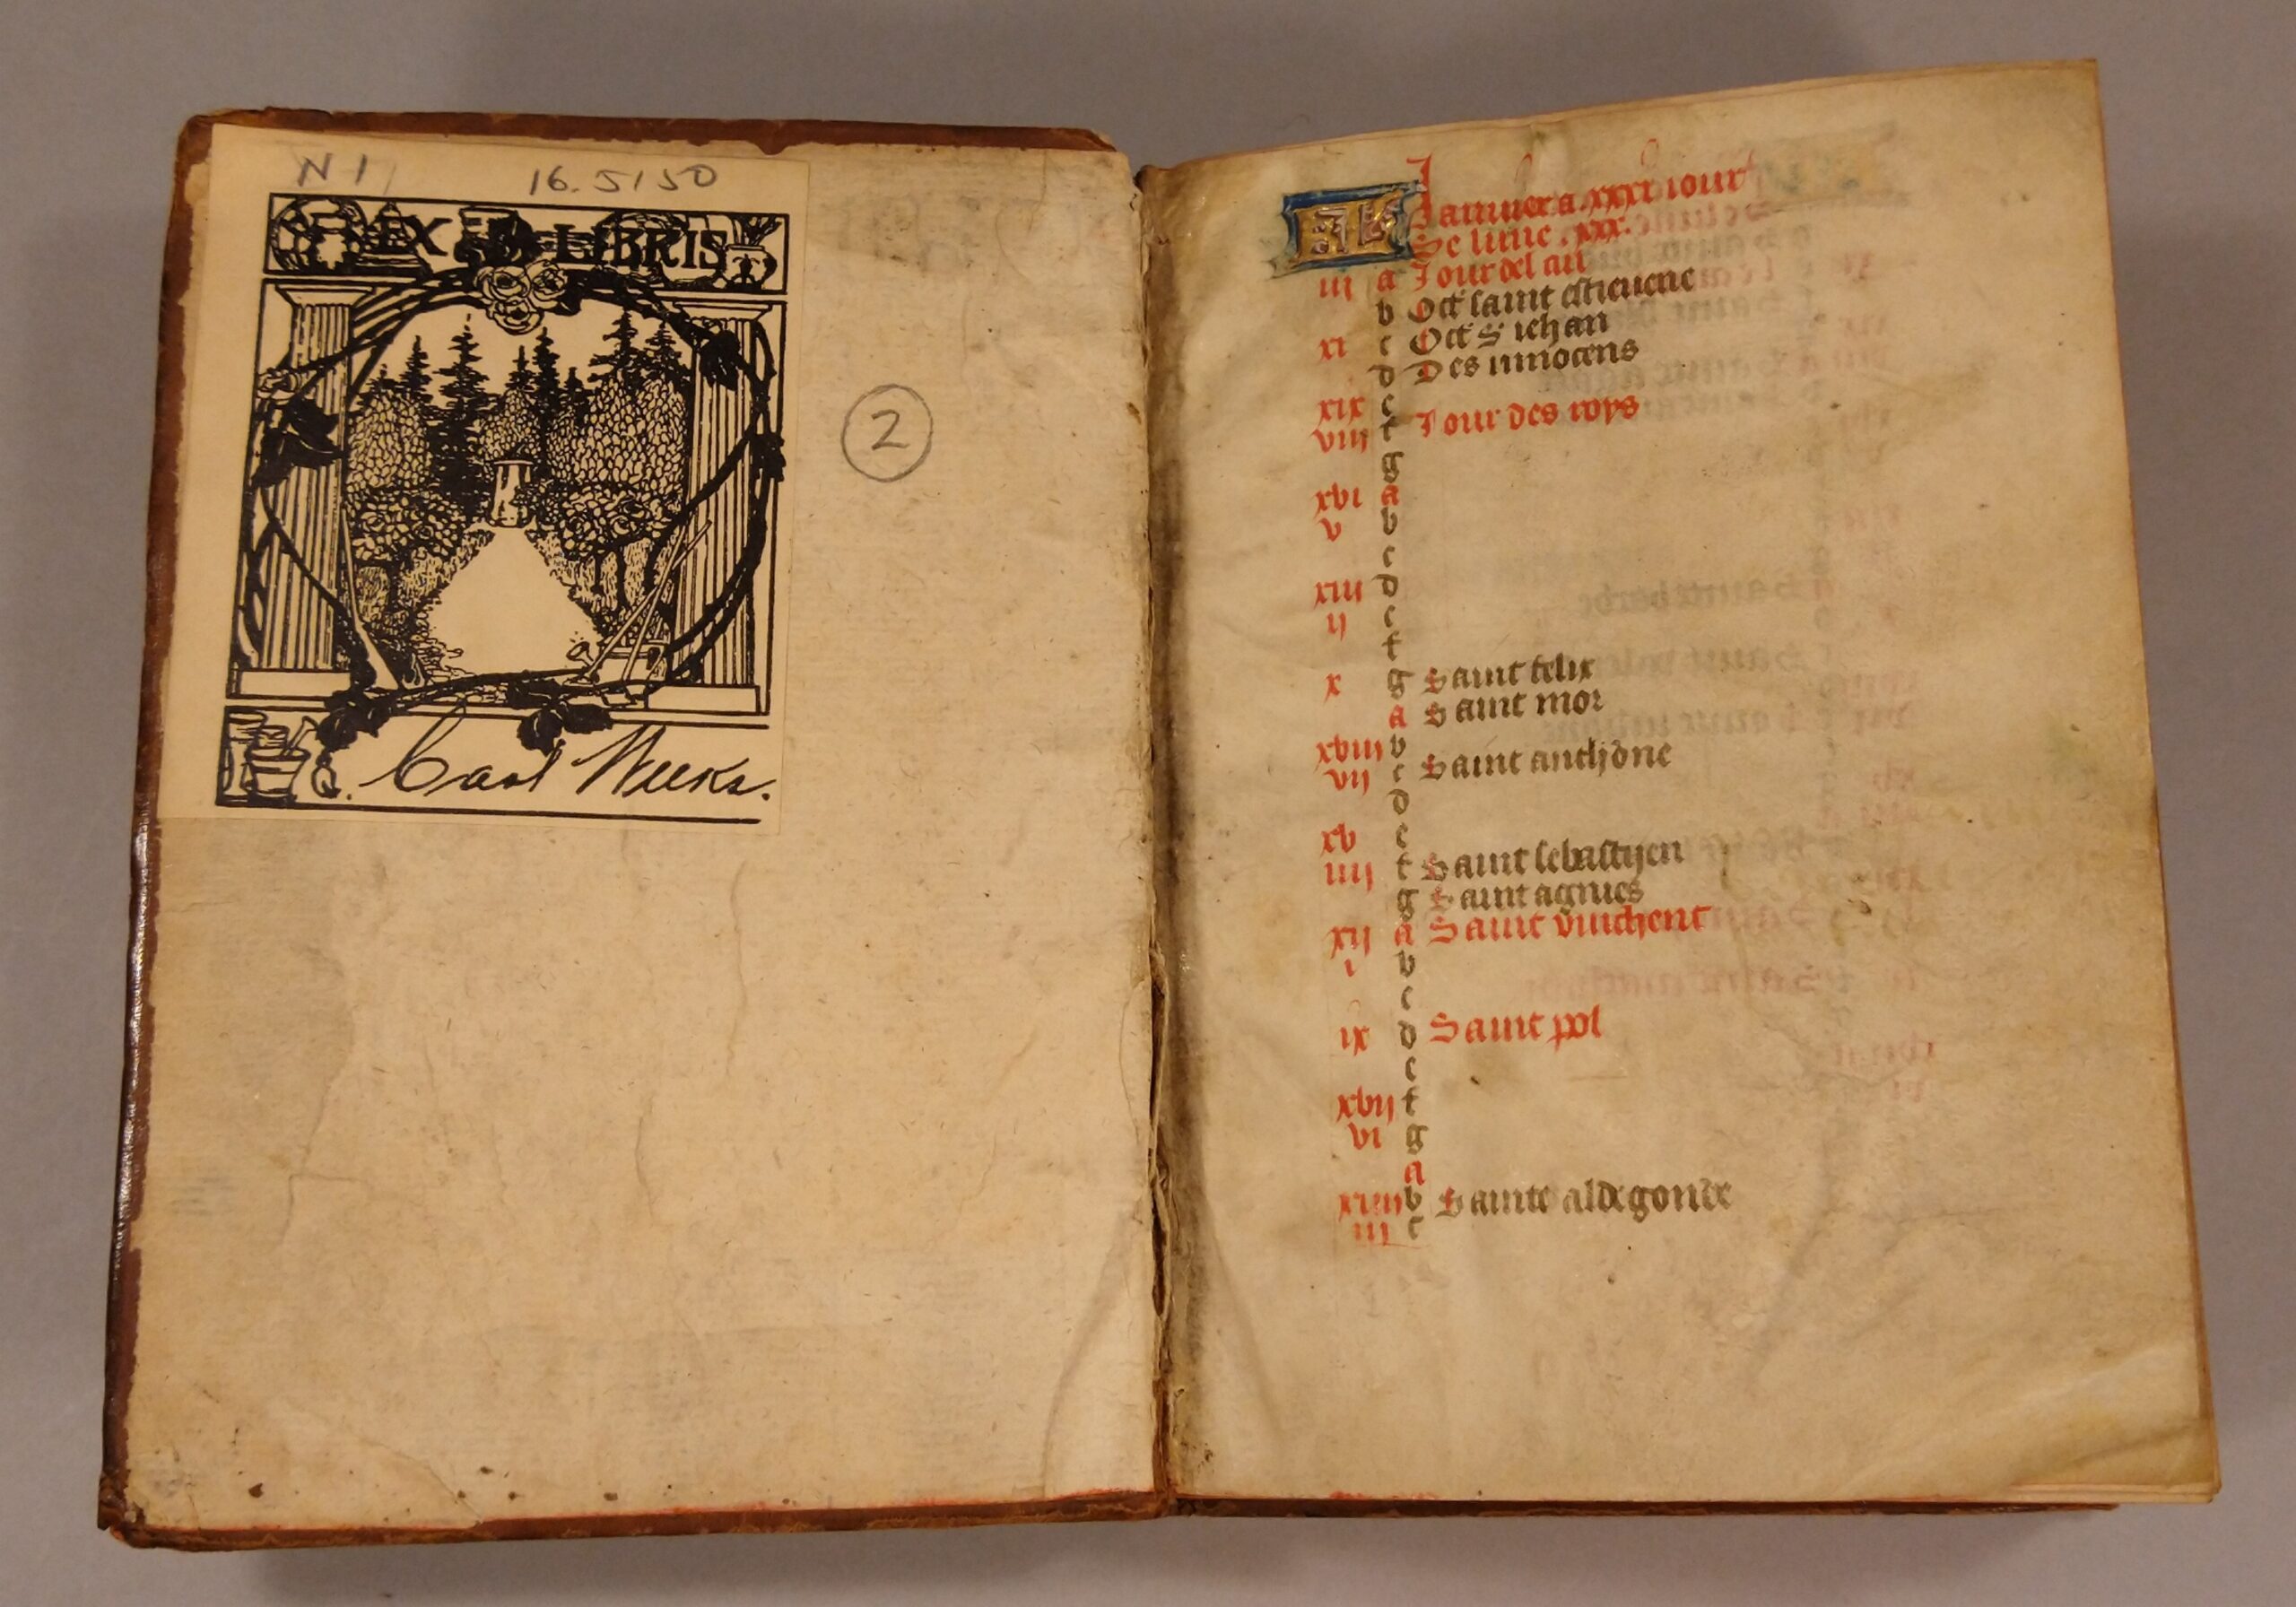 N 1 16.5150
EX LIBRIS
Carl Weeks.
2
KL Januier a .xxxi iour
Se lune .xxx.
iii a Jour del an
b Oct saint estieuene
xi c Oct S iehan
d Des innocens
xix e
viii f Jour des roys
g
xvi a
v b
c
xiii d
ij e
f
x g Saint felix
a Saint mor
xviii b
vij c Saint anthone
d
xv e
iiij f Saint sebastijen
g Saint agnies
xij a Saint vinchent
i b
c
ix d Saint pol
e
xvij f
vi g
a
xiiii b Sainte aldegonde
iij c